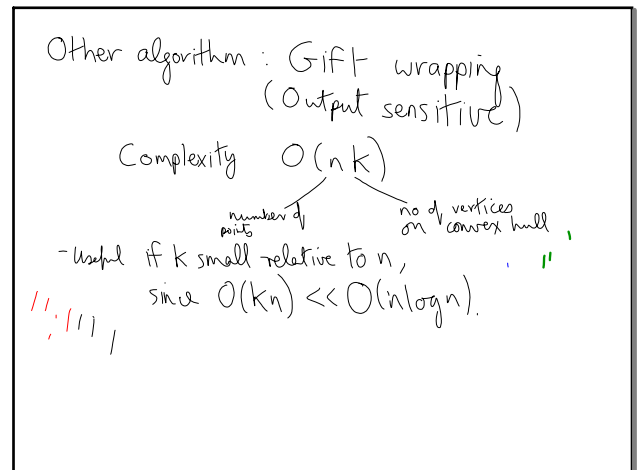 Other algorithm : Gift wrapping
(Output sensitive)
Complexity O(nk)
number of points
no of vertices on convex hull
- Useful if k small relative to n,
since O(kn) << O(nlogn).